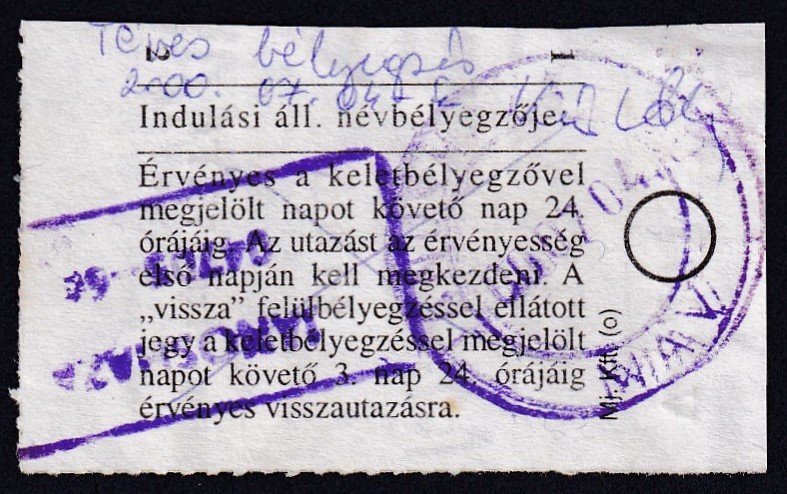 Téves bélyegzés
2000. 07. 04.
Indulási áll. névbélyegzője
Érvényes a keletbélyegzővel
megjelölt napot követő nap 24.
órájáig. Az utazást az érvényesség
első napján kell megkezdeni. A
„vissza” felülbélyegzéssel ellátott
jegy a keletbélyegzéssel megjelölt
napot követő 3. nap 24. órájáig
érvényes visszautazásra.
Mj. Kft. (o)